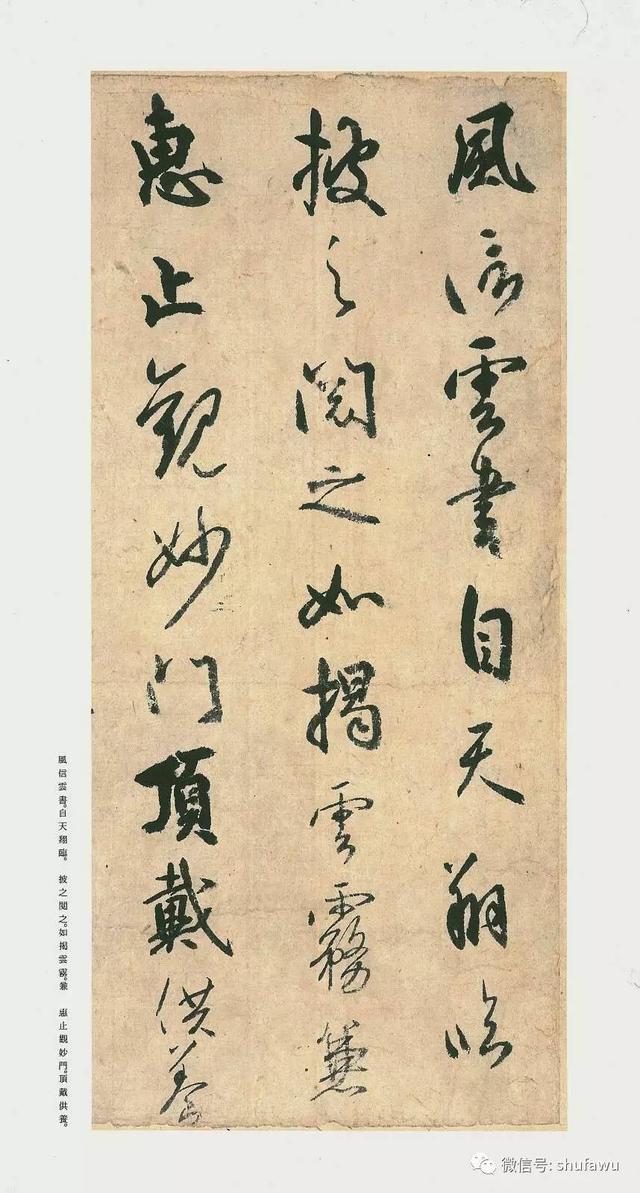 風信雲書自天翔臨
披之閱之如揭雲霧兼
惠止觀妙門頂戴供養
風信雲書。自天翔臨。　披之閱之。如揭雲霧。兼　惠止觀妙門。頂戴供養。
微信号: shufawu